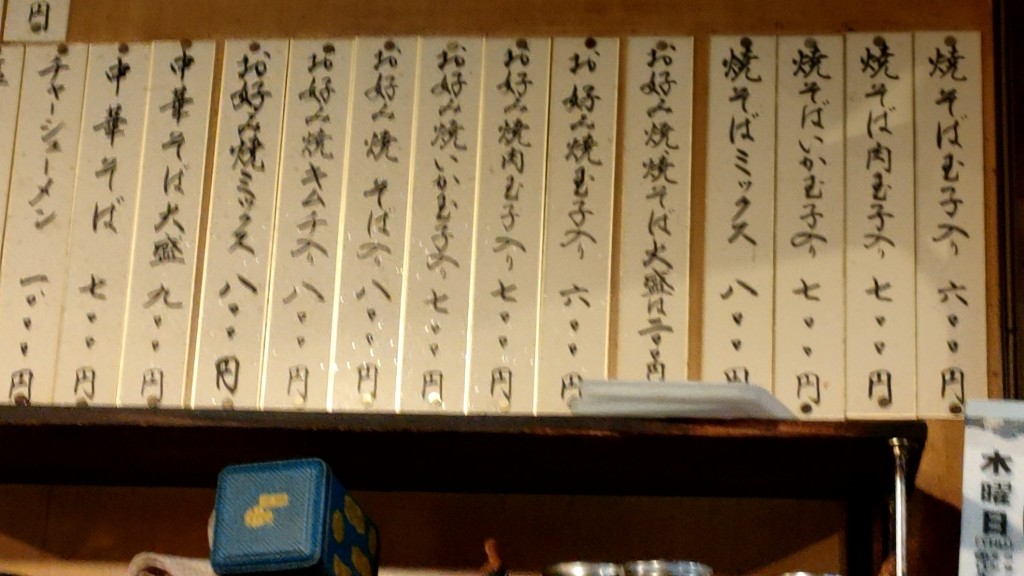 焼そば玉子入り 六〇〇円
焼そば肉玉子入り 七〇〇円
焼そばいか玉子入り 七〇〇円
焼そばミックス 八〇〇円
お好み焼焼そば大盛は二〇〇円
お好み焼玉子入り 六〇〇円
お好み焼肉玉子入り 七〇〇円
お好み焼いか玉子入り 七〇〇円
お好み焼 そば入り 八〇〇円
お好み焼キムチ入り 八〇〇円
お好み焼ミックス 八〇〇円
中華そば大盛 九〇〇円
中華そば 七〇〇円
チャーシューメン 一〇〇〇円
円
木曜日